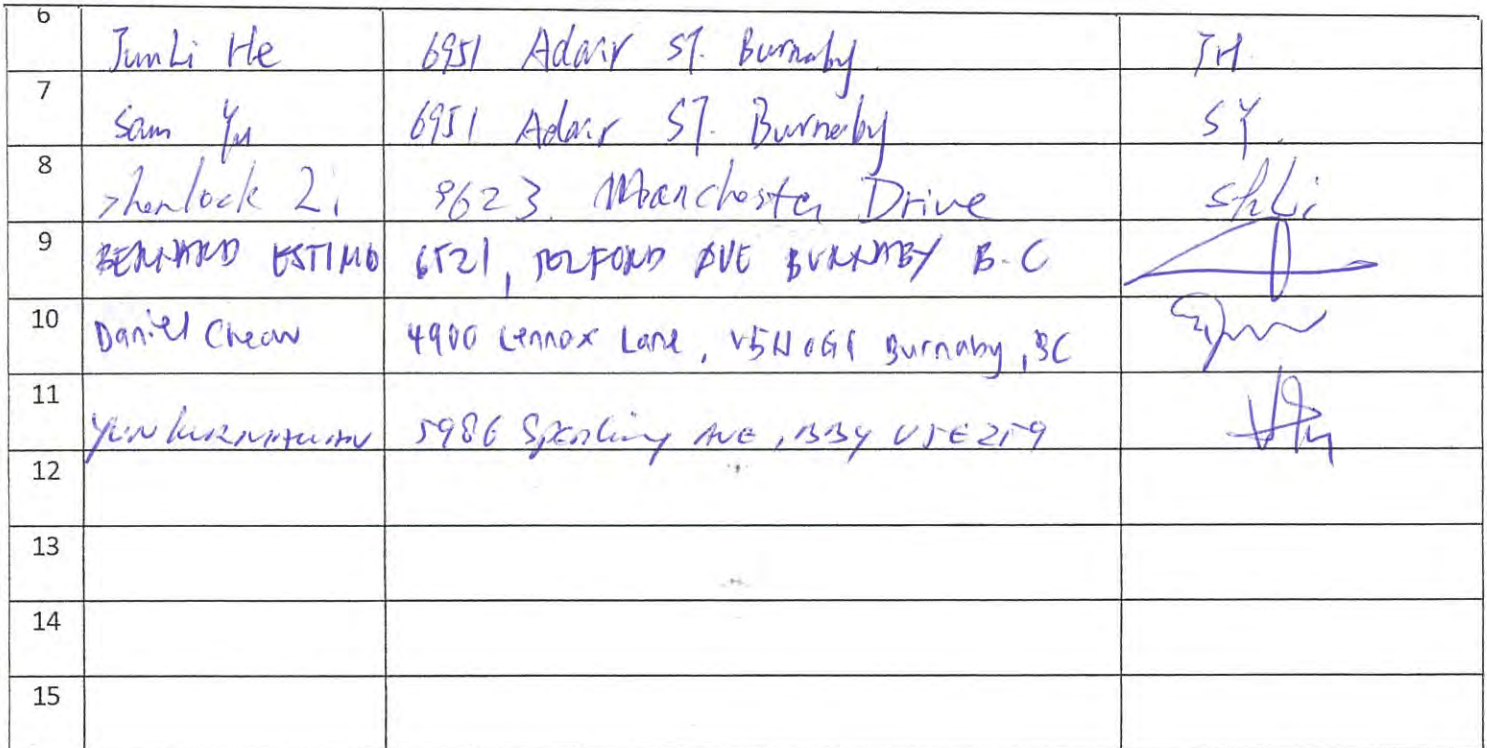 6 JunLi He 6951 Adair ST. Burnaby. JH
7 Sam Yu 6951 Adair ST. Burnaby SY
8 Sherlock Li 9623 Manchester Drive ShLi
9 BERNARD ESTIMO 6521, TELFORD AVE BURNABY B.C
10 Daniel Cheow 4900 Lennox Lane, V5H 0G1 Burnaby, BC
11 5986 Sperling AVE, BBY V5E 2T9
12
13
14
15